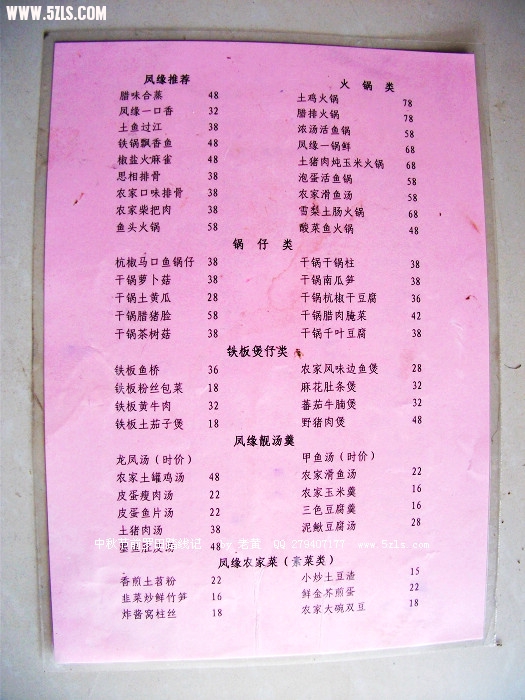 www.5ZLS.COM
凤缘推荐
腊味合蒸 48
凤缘一口香 32
土鱼过江 38
铁锅飘香鱼 48
椒盐火麻雀 48
思相排骨 38
农家口味排骨 38
农家柴把肉 38
鱼头火锅 58
火锅类
土鸡火锅 78
腊排火锅 78
浓汤活鱼锅 58
凤缘一锅鲜 68
土猪肉炖玉米火锅 68
泡蛋活鱼锅 58
农家滑鱼汤 58
雪梨土肠火锅 68
酸菜鱼火锅 48
锅仔类
杭椒马口鱼锅仔 38
干锅萝卜菇 38
干锅土黄瓜 28
干锅腊猪脸 58
干锅茶树菇 38
干锅干锅柱 38
干锅南瓜笋 38
干锅杭椒干豆腐 36
干锅腊肉腌菜 42
干锅千叶豆腐 38
铁板煲仔类
铁板鱼桥 36
铁板粉丝包菜 18
铁板黄牛肉 32
铁板土茄子煲 18
农家风味边鱼煲 28
麻花肚条煲 32
蕃茄牛腩煲 32
野猪肉煲 48
凤缘靓汤羹
龙凤汤（时价）
农家土罐鸡汤 48
皮蛋瘦肉汤 22
皮蛋鱼片汤 22
土猪肉汤 38
48
甲鱼汤（时价）
农家滑鱼汤 22
农家玉米羹 16
三色豆腐羹 18
泥鳅豆腐汤 28
by 老黄 QQ 279407177 www.5zls.com
凤缘农家菜（素菜类）
香煎土苕粉 22
韭菜炒鲜竹笋 16
炸酱窝柱丝 18
小炒土豆渣 15
鲜金芥煎蛋 22
农家大碗双豆 18